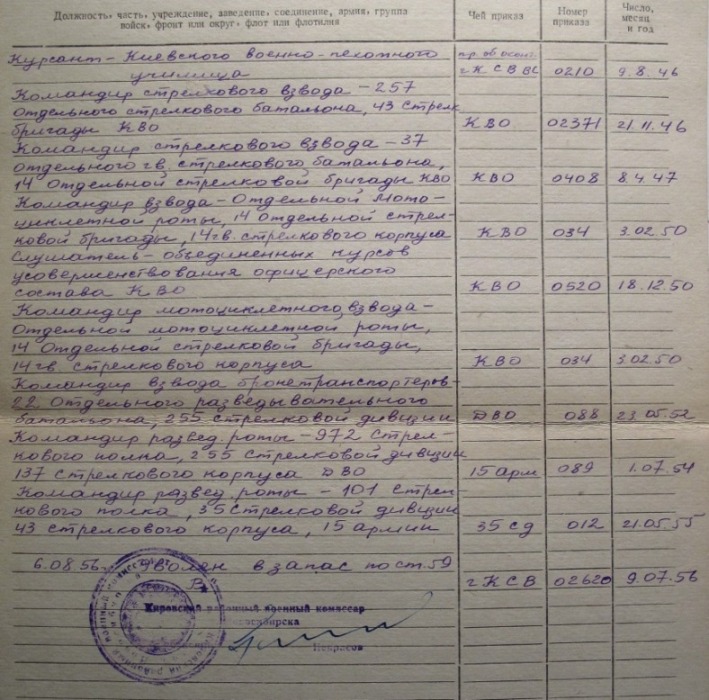 Должность, часть, учреждение, заведение, соединение, армия, группа
войск, фронт или округ, флот или флотилия
Чей приказ
Номер
приказа
Число,
месяц
и год
Курсант – Киевского военно-пехотного
училища гКСВВС 0210 9.8.46
Командир стрелкового взвода – 257
Отдельного стрелкового батальона, 43 Стрелк.
бригады КВО КВО 02371 21.11.46
Командир стрелкового взвода – 37
отдельного гв. стрелкового батальона,
14 Отдельной стрелковой бригады КВО КВО 0408 8.4.47
Командир взвода – Отдельной Мото-
циклетной роты, 14 Отдельной стрел-
ковой бригады, 14 гв. стрелкового корпуса КВО 034 3.02.50
Слушатель – объединенных курсов
усовершенствования офицерского
состава КВО КВО 0520 18.12.50
Командир мотоциклетного взвода –
Отдельной мотоциклетной роты,
14 Отдельной стрелковой бригады,
14 гв стрелкового корпуса КВО 034 3.02.50
Командир взвода бронетранспортеров –
22 Отдельного разведывательного
батальона, 255 стрелковой дивизии ДВО 088 23.05.52
Командир развед. роты – 972 Стрел-
кового полка, 255 Стрелковой дивизии
137 стрелкового корпуса ДВО 15 Арм 089 1.07.54
Командир развед. роты – 101 Стрел-
кового полка, 35 Стрелковой дивизии
43 стрелкового корпуса, 15 армии 35 сд 012 21.05.55
6.08.56 Уволен в запас по ст. 59
гКСВ 02620 9.07.56
Кировский районный военный комиссар
Новосибирска
Некрасов